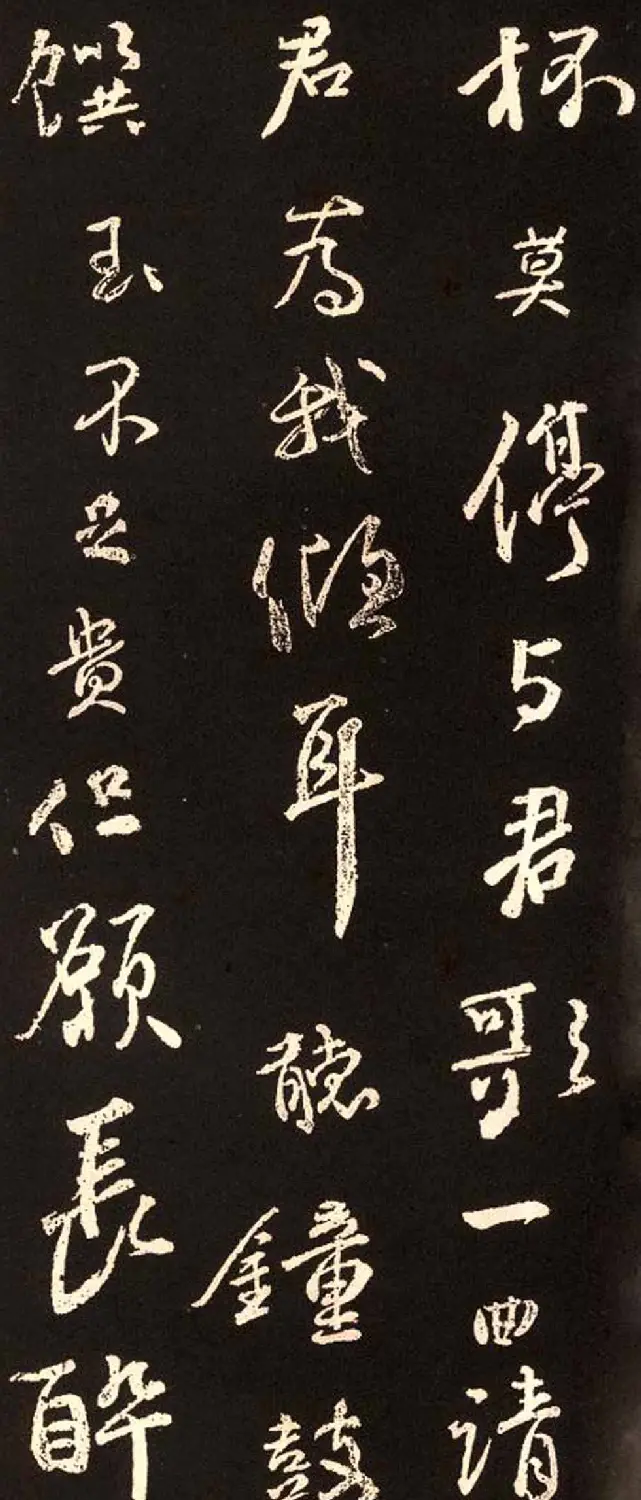 杯莫停与君歌一曲請
君為我傾耳聽鐘鼓
饌玉不足貴但願長醉